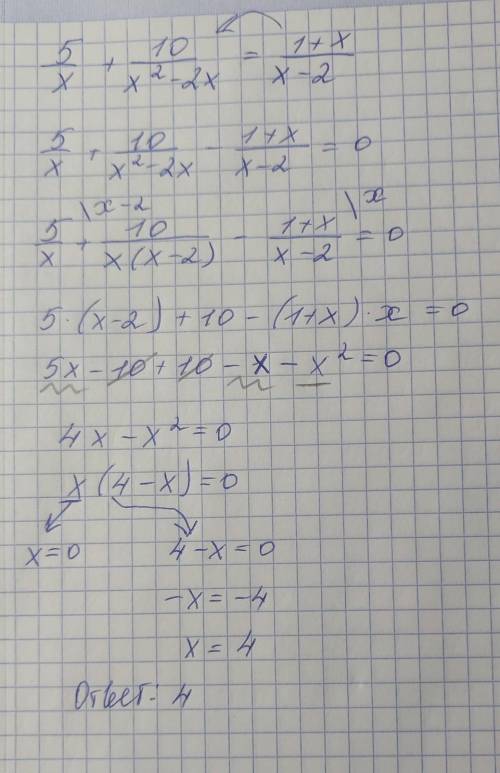 5/x + 10/(x² - 2x) = (1+x)/(x-2)
5/x + 10/(x² - 2x) - (1+x)/(x-2) = 0
5/x \x-2 + 10/(x(x-2)) - (1+x)/(x-2) \x = 0
5·(x-2) + 10 - (1+x)·x = 0
5x - 10 + 10 - x - x² = 0
4x - x² = 0
x(4-x) = 0
x=0 4-x=0
-x = -4
x = 4
Ответ: 4